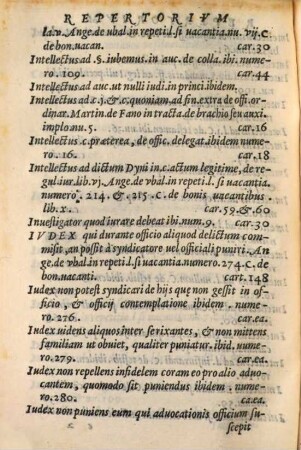 REPERTORIVM
la.v. Ange. de vbal. in repeti. l. si uacantia. nu. vij. C.
de bon. uacan. car. 30
Intellectus ad .S. iubemus in auc. de colla. ibi. nume-
ro. 109. car. 44
Intellectus ad auc. ut nulli iudi. in princi. ibidem.
Intellectus ad c. j. & c. quoniam. ad fin. extra de offi. or-
dinar. Martin. de Fano in tracta. de brachio seu anxi.
implo. nu. 5. car. 16
Intellectus c. præterea, de offic. delegat. ibidem nume
ro. 16. car. 18
Intellectus ad dictum Dyni in c. actum legitime, de re
gul. iur. lib. vj. Ange. de vbal. in repeti. l. si uacantia.
numero. 214. & 215. C. de bonis uacantibus.
lib. x. car. 59. & 60
Inuestigator quod iurare debeat ibi. num. 9. car. 30
IVDEX qui durante officio aliquod delictum com-
misit, an possit à syndicatore uel officiali puniri. An-
ge. de vbal. in repeti. l. si uacantia. numero. 274. C. de
bon. uacanti. cart. 148
Iudex non potest syndicari de hijs que non gessit in of-
ficio, & officij contemplatione ibidem. nume-
ro. 276. car. ea.
Iudex uidens aliquos inter se rixantes, & non mittens
familiam ut obuiet, qualiter puniatur. ibid. nume
ro. 279. car. ea.
Iudex non repellens infidelem coram eo pro alio aduo-
cantem, quomodo sit puniendus ibidem. nume-
ro. 280. car. ea.
Iudex non puniens eum qui aduocationis officium su-
scepit